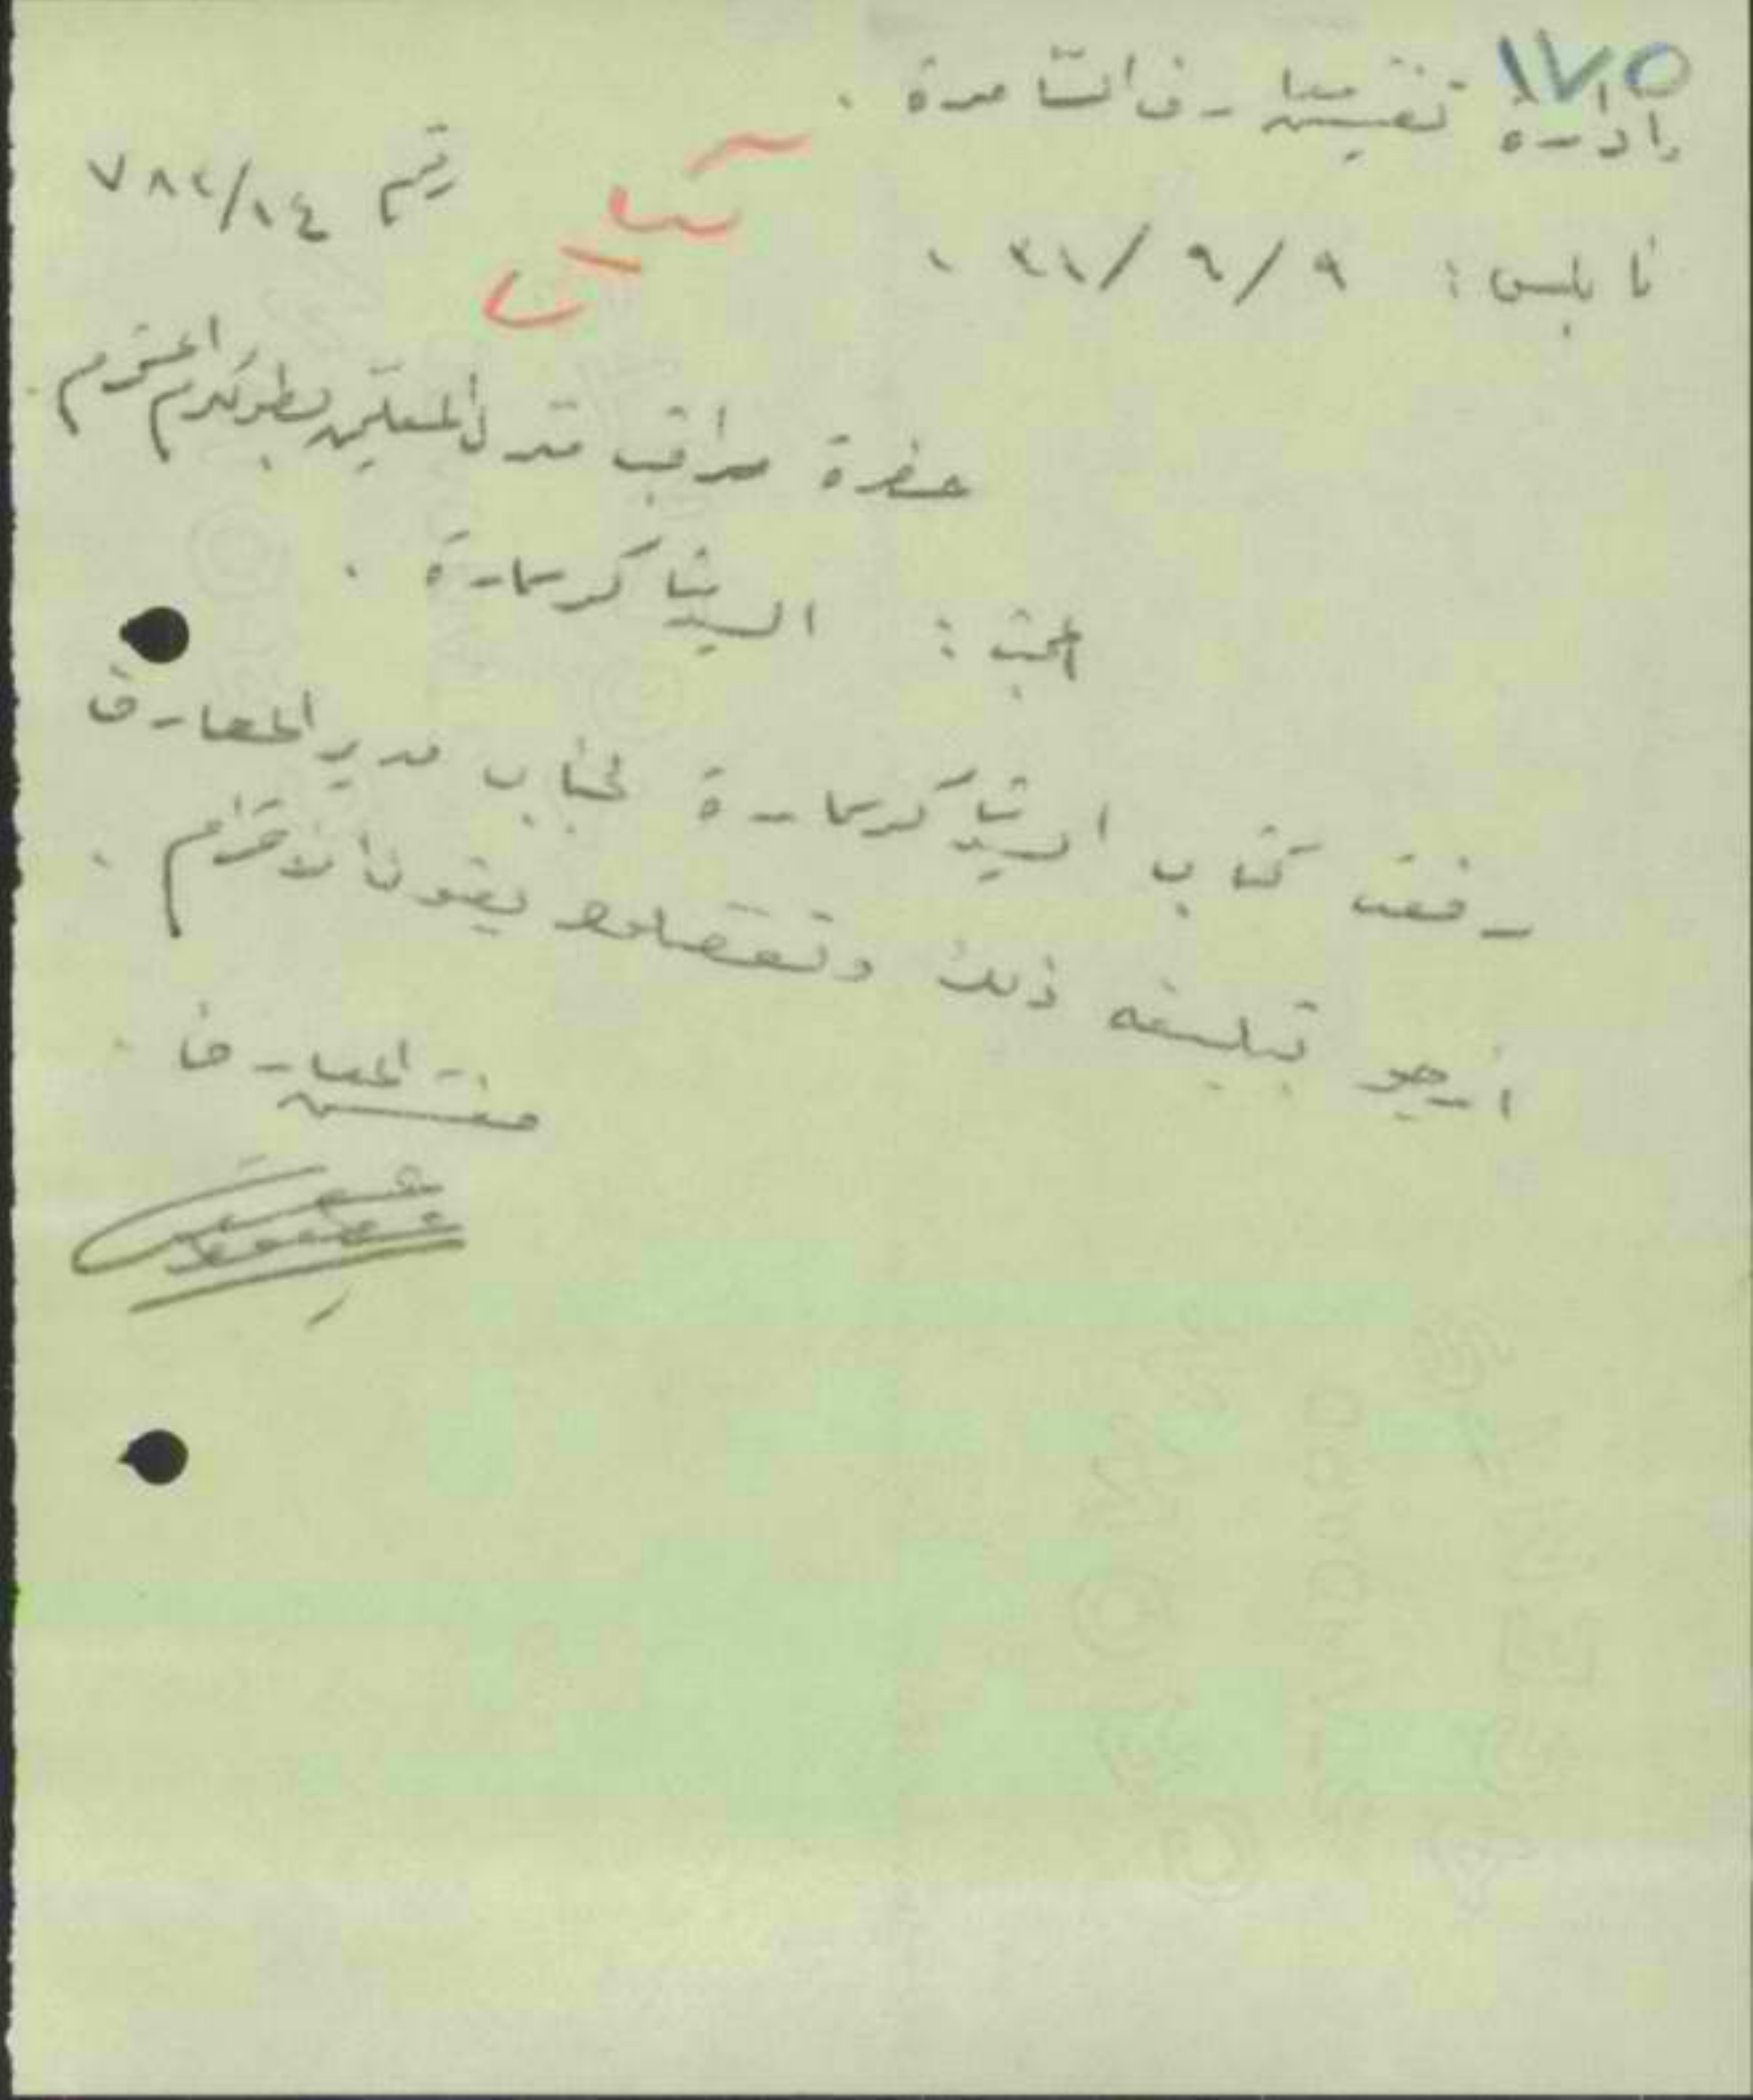 ١٧٥
إدارة تفتيش معارف السامرة .
رقم ٧٨٢/١٤
نابلس : ٩/٩/٣١ .
حضرة مراقب منزل المعلمين بطولكرم المحترم .
البحث : السيد شاكر سمارة .
رفعت كتاب السيد شاكر سمارة لجناب مدير المعارف
ارجو تبليغه ذلك وتفضلوا بقبول الاحترام .
مفتش المعارف .